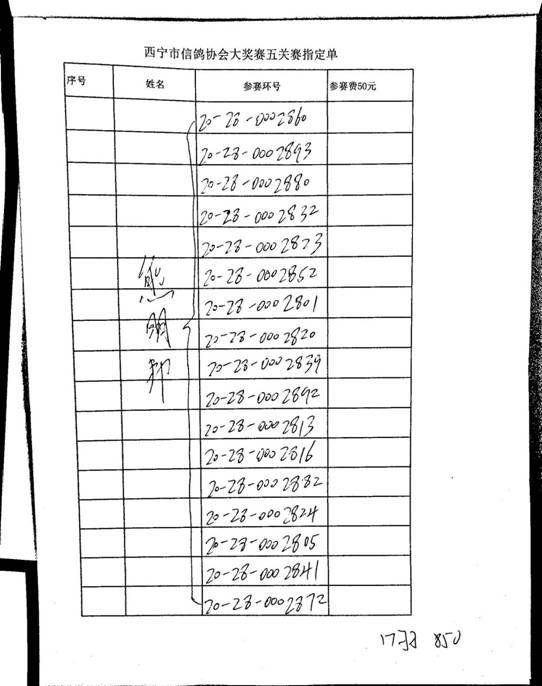 西宁市信鸽协会大奖赛五关赛指定单
序号 姓名 参赛环号 参赛费50元
20-28-0002860
20-28-0002893
20-28-0002880
20-28-0002832
20-28-0002873
20-28-0002852
20-28-0002801
20-28-0002820
20-28-0002839
20-28-0002892
20-28-0002813
20-28-0002816
20-28-0002882
20-28-0002824
20-28-0002805
20-28-0002841
20-28-0002872
熊
明
邦
17羽 850